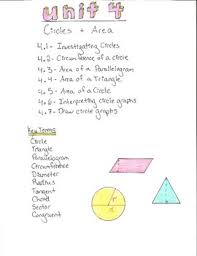 unit 4
Circles + Area
4.1 - Investigating Circles
4.2 - Circumference of a circle
4.3 - Area of a Parallelogram
4.4 - Area of a Triangle
4.5 - Area of a Circle
4.6 - Interpreting circle graphs
4.7 - Draw circle graphs
Key Terms
Circle
Triangle
Parallelogram
Circumference
Diameter
Radius
Tangent
Chord
Sector
Congruent